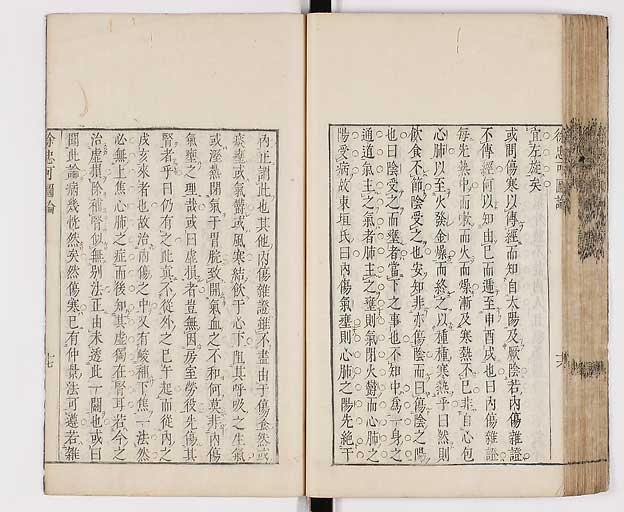 宜左旋矣
或問傷寒以傳經而知自太陽及厥陰若內傷雜證
不傳經何以知由巳而遞至申酉戌也曰內傷雜證
每先熱中而嗽而火而燥漸及寒熱不已非自心包
心肺以至火發金燥而終之以種種寒熱乎曰然則
飲食不節陰受之也安知非亦傷陰而曰傷陰之陽
也曰陰受之而壅者當下之事也不知中焉一身之
通道氣主之氣者肺主之壅則氣閉火鬱而心肺之
陽受病故東垣氏曰內傷氣壅則心肺之陽先絕于
內正謂此也其他內傷雜證雖不盡由于傷食然或
痰壅或氣鬱或風寒結飲于心下阻其呼吸之生氣
或溼熱閉氣于胃脘致開氣血之不和何莫非內傷
氣壅之理哉或曰虛損者豈無因房室勞役先傷其
腎者乎曰仍有之此眞不從外之巳午起而從內之
戌亥來者也故治內傷之中又有峻補下焦一法然
必無上焦心肺之症而後知其虛獨在腎耳若今之
治虛損除補腎似無別法正由未透此一關也或曰
聞此論病幾恍然矣然傷寒已有仲景法可遵若雜
徐忠可圖論
十七